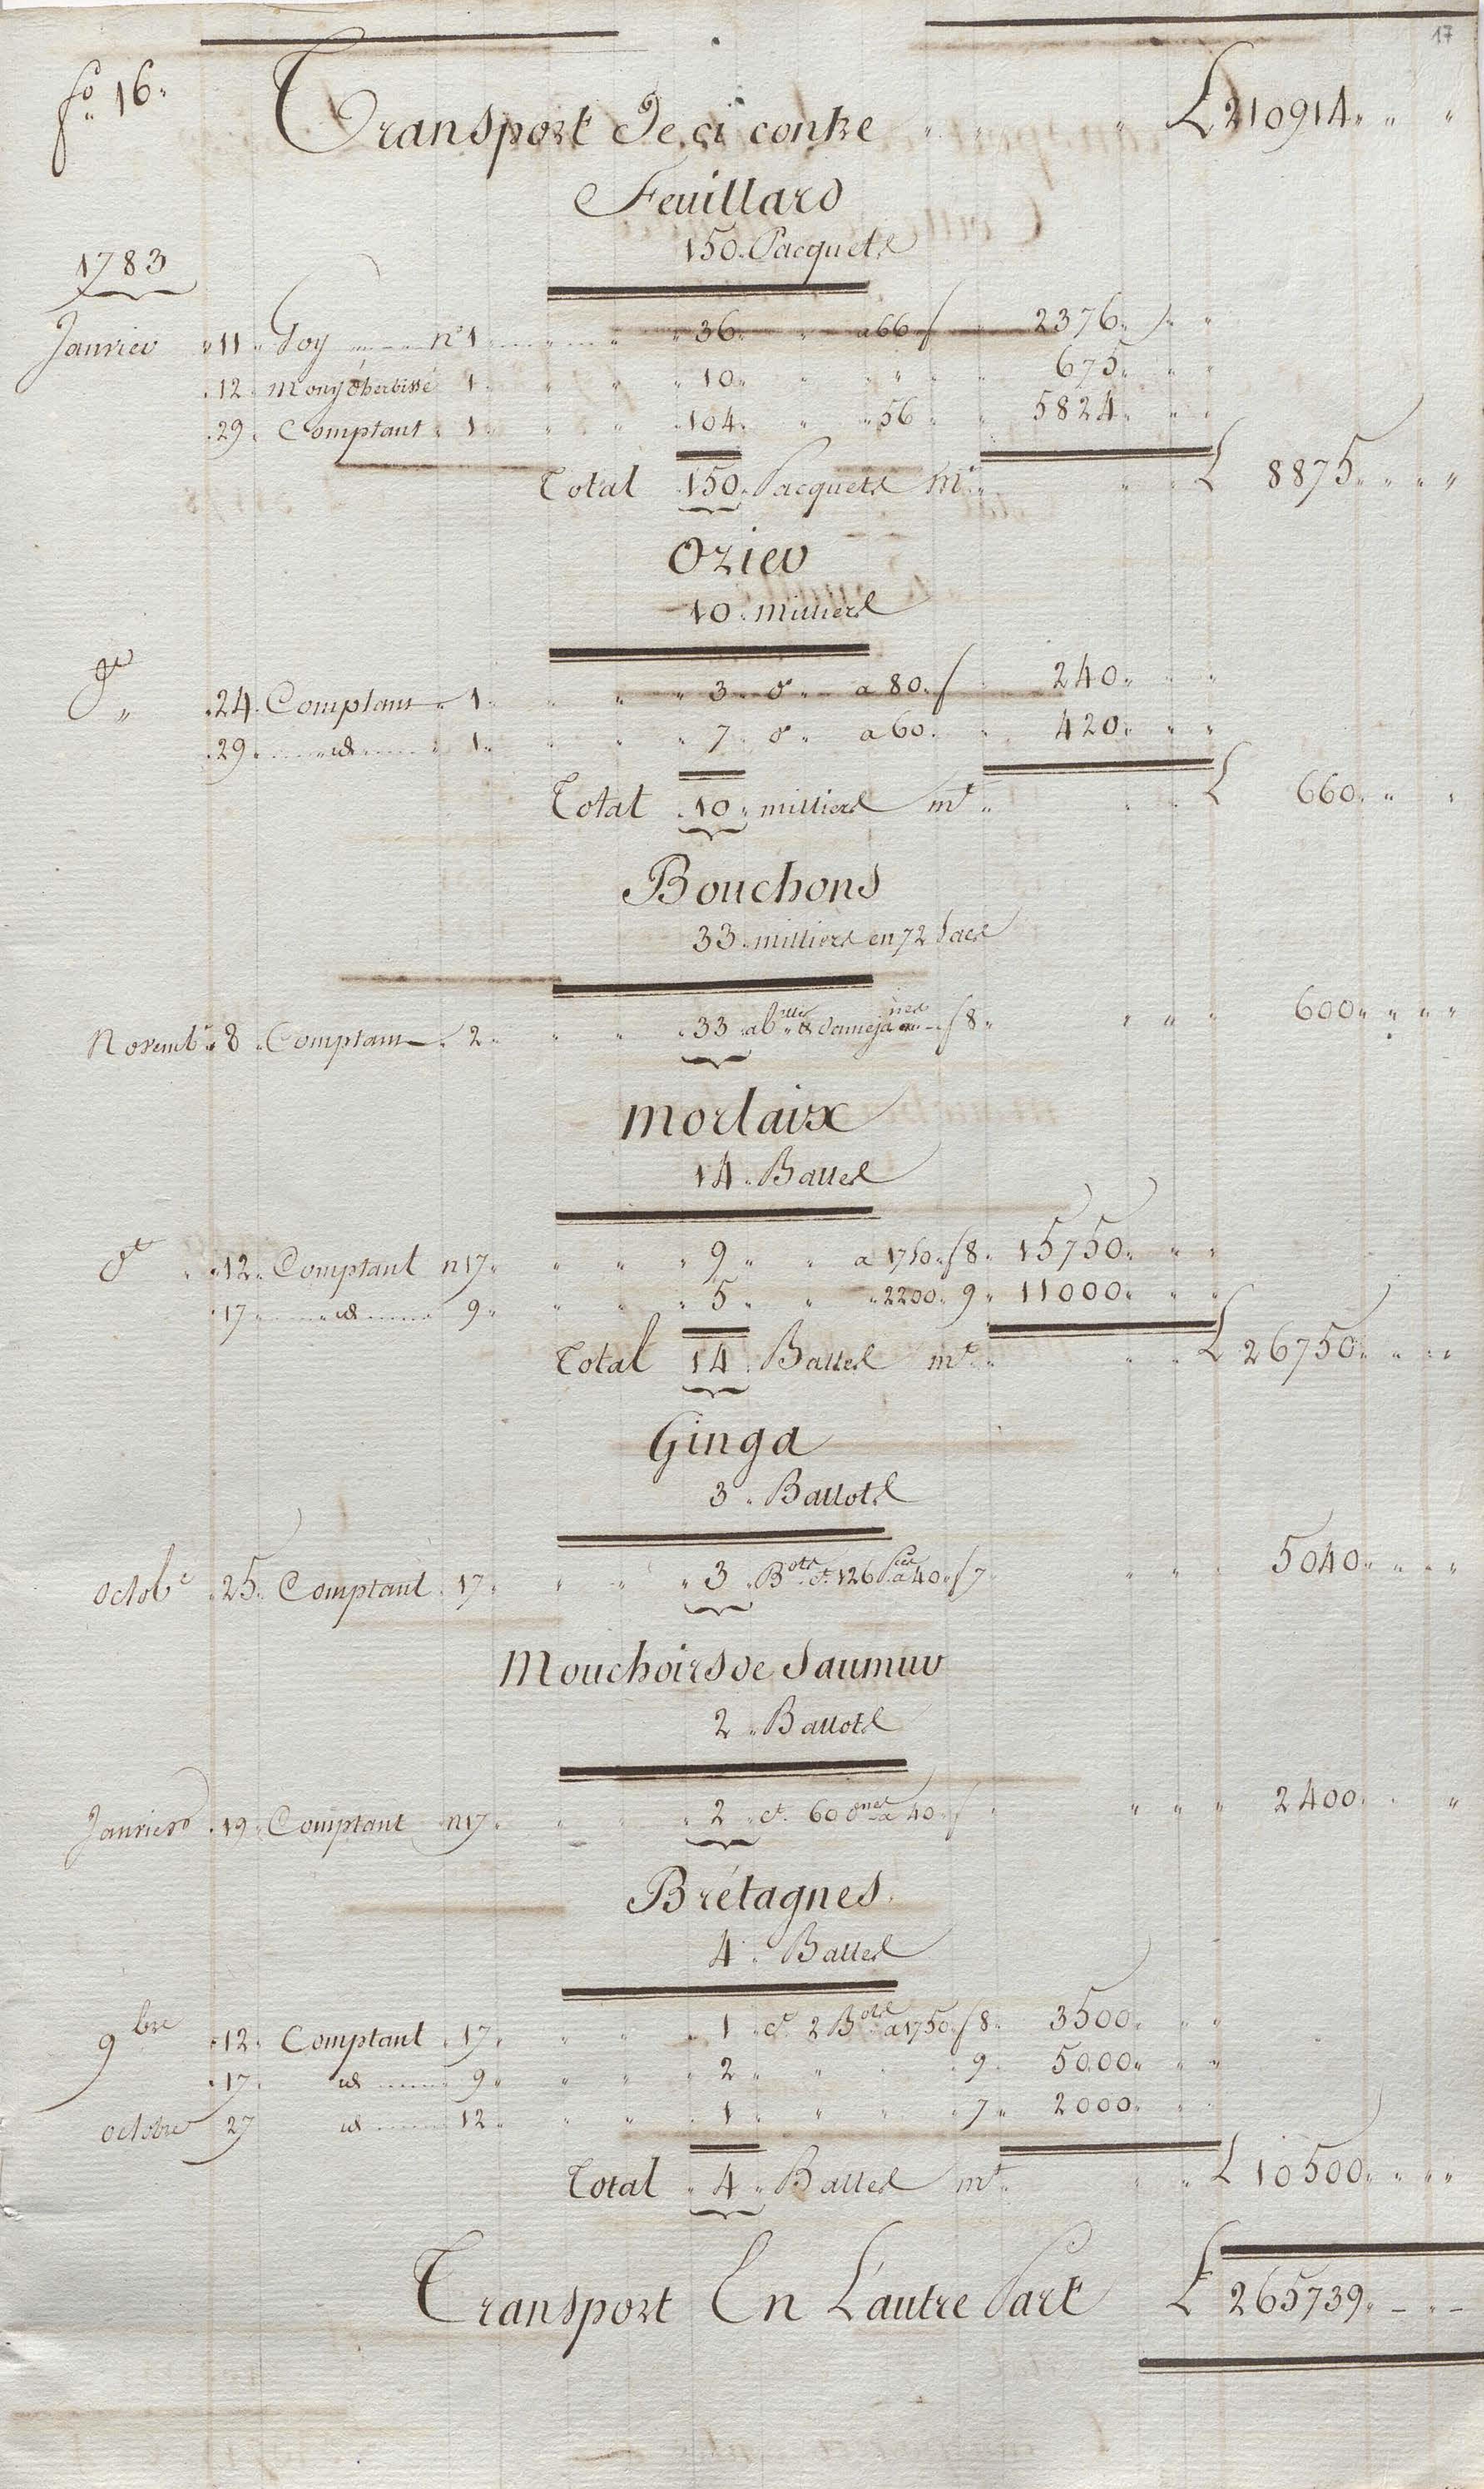 17
fo 16. Transport De ci contre £ 210914 " "
Feuillard
150 Pacquets
1783
Janvier 11 Goy n° 1 36 a 66 f 2376 " "
12 Mony d'herbissé 1 10 " 675 " "
29 Comptant 1 104 " 56 5824 " "
Total 150 Pacquets mt £ 8875 " "
Ozier
10 milliers
dt 24 Comptant 1 3 d° a 80 f 240 " "
29 id 1 7 d° a 60 420 " "
Total 10 milliers mt £ 660 " "
Bouchons
33 milliers en 72 Sacs
Novembe 8 Comptant 2 33 a blles & damejanes f 8 600 " "
Morlaix
14 Balles
dt 12 Comptant n 17 9 a 1750 f 8 15750 " "
17 id 9 5 " 2200 9 11000 " "
Total 14 Balles mt £ 26750 " "
Ginga
3 Ballots
octobe 25 Comptant 17 3 Bots ct 126 Pces a 40 f 7 5040 " "
Mouchoirs de Saumur
2 Ballots
Janvier 19 Comptant n 17 2 ct 60 dnes a 40 f 2400 " "
Brétagnes
4 Balles
9bre 12 Comptant 17 1 ct 2 Bots a 1750 f 8 3500 " "
17 id 9 2 " 9 5000 " "
octobre 27 id 12 1 " " 7 2000 " "
Total 4 Balles mt £ 10500 " "
Transport En L'autre Part £ 265739 " - " -